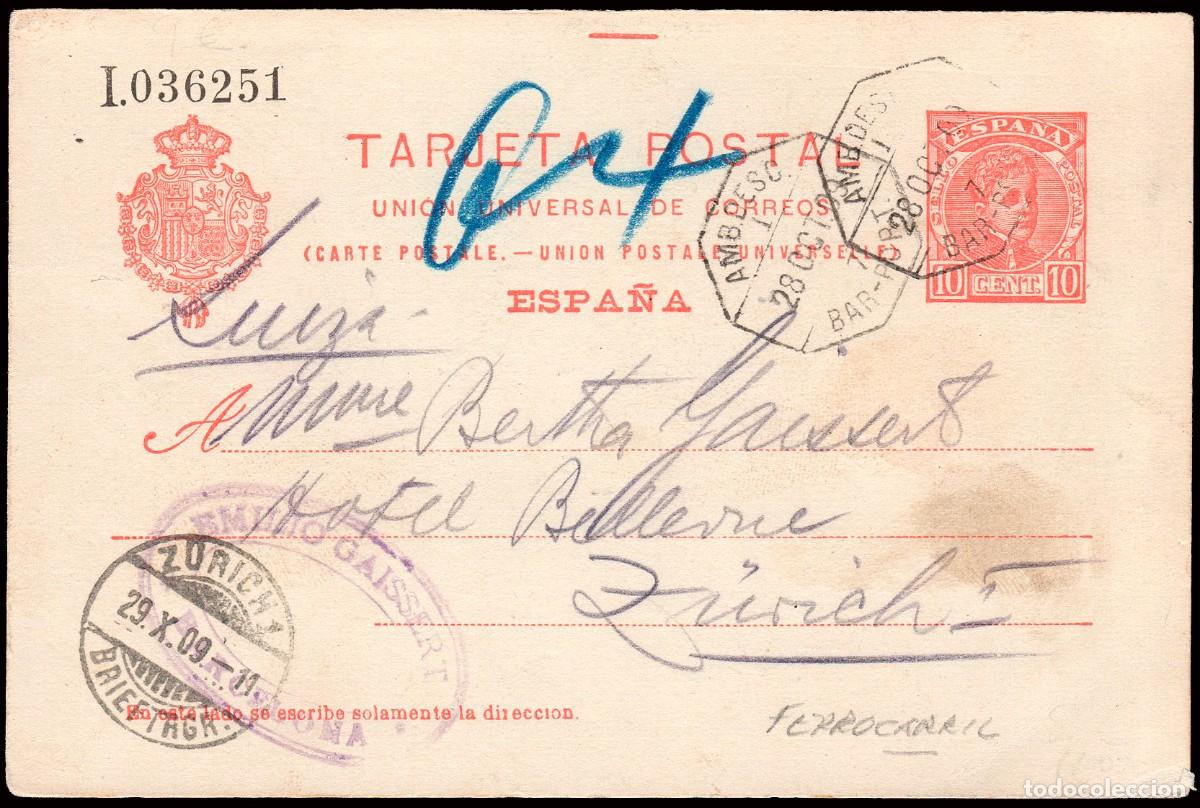 I.036251
TARJETA POSTAL
UNIÓN UNIVERSAL DE CORREOS
(CARTE POSTALE. — UNION POSTALE UNIVERSELLE)
ESPAÑA
ESPAÑA
SELLO
POSTAL
10 CENT. 10
AMB. DESC. 1
28 OCT 09
BAR-PORT.
AMB. DESC. 1
28 OCT 09
BAR-PORT.
Suiza
A Mme Bertha Gaissert
Hotel Bellevue
Zürich
EMILIO GAISSERT
BARCELONA
ZÜRICH 1
29.X.09-11
BRIEFTRGR.
En este lado se escribe solamente la direccion.
FERROCARRIL
todocoleccion